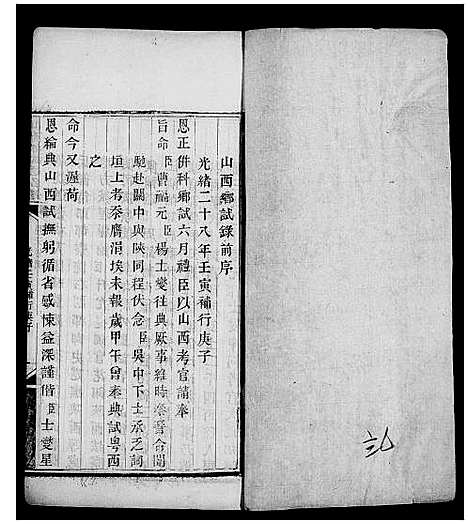 山西鄉試錄前序
光緒二十八年壬寅補行庚子
恩正併科鄉試六月禮臣以山西考官請奉
旨命臣曹福元臣楊士燮往典厥事維時秦晉合闈
馳赴關中與陝同程伏念臣吳中下士承乏詞
垣上考忝膺涓埃未報歲甲午曾奉典試粵西
之
命今又渥荷
恩綸典山西試撫躬循省感悚益深謹偕臣士燮星
光緒壬寅補行庚子